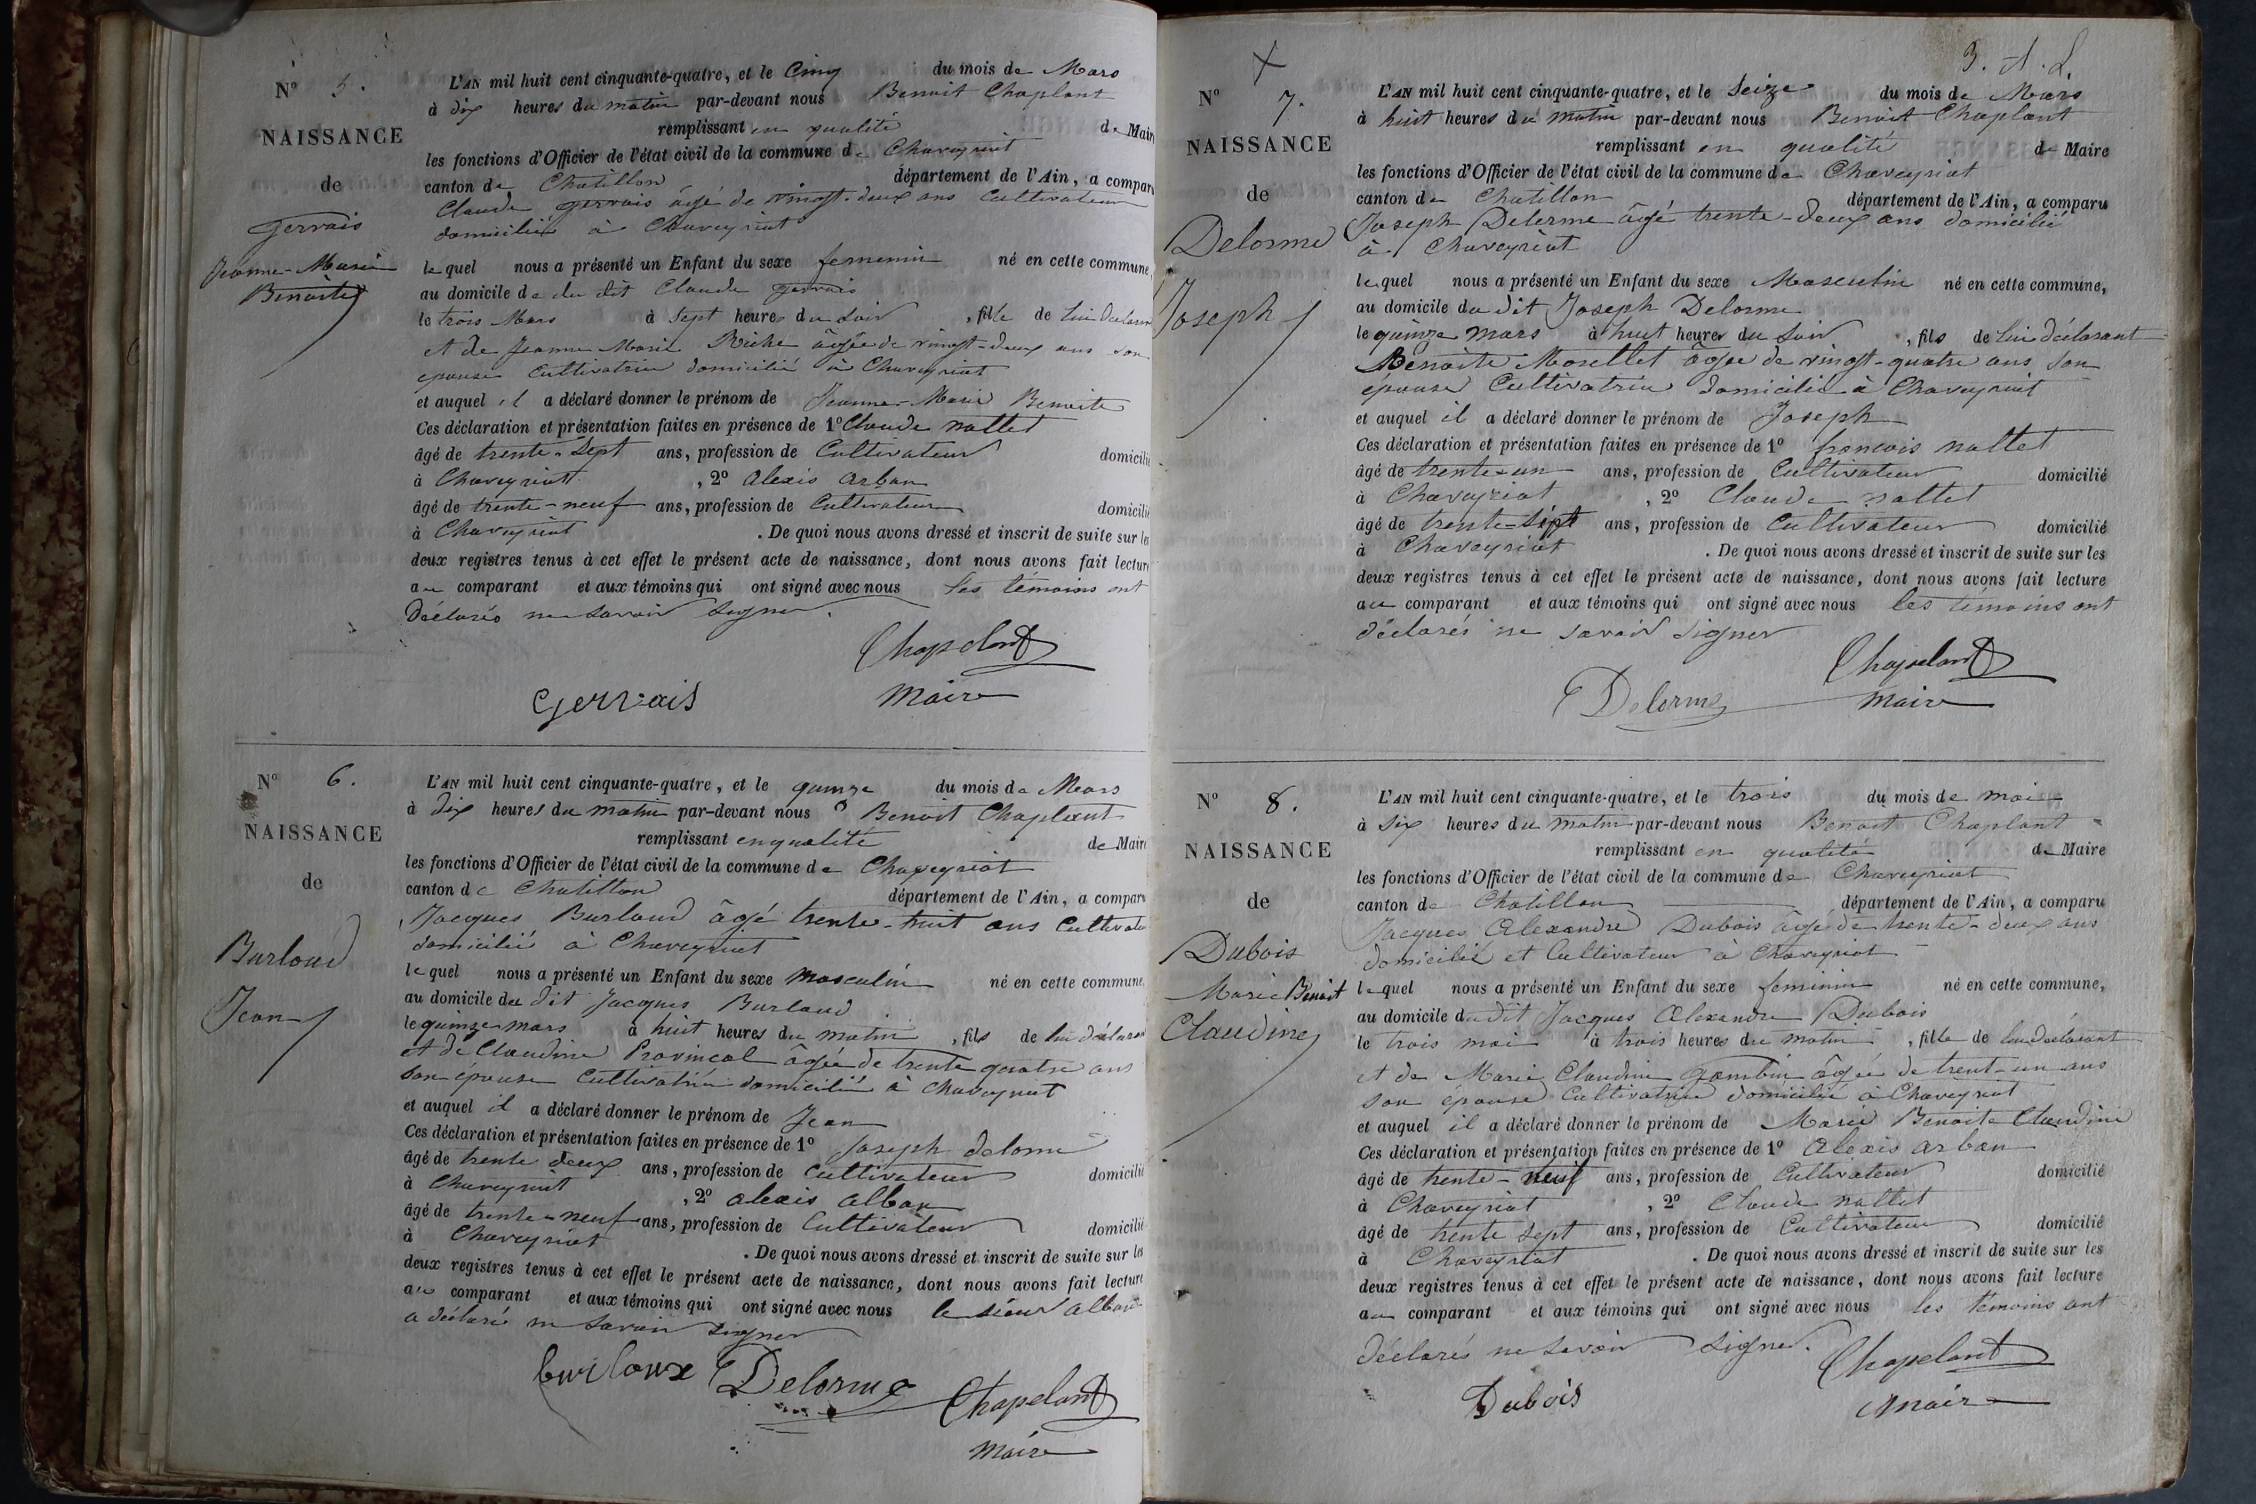 N° 5.
NAISSANCE
de
Gervais
Jeanne-Marie
Benoite
L'AN mil huit cent cinquante-quatre, et le Cinq du mois de Mars
à dix heures du matin par-devant nous Benoit Chaplant
remplissant en qualité de Maire
les fonctions d'Officier de l'état civil de la commune de Chaveyriat
canton de Chatillon département de l'Ain, a comparu
Claude gervais âgé de vingt-deux ans Cultivateur
domicilié à Chaveyriat
lequel nous a présenté un Enfant du sexe femenin né en cette commune,
au domicile de du dit Claude gervais
le trois Mars à Sept heures du Soir, fille de lui déclarant
et de Jeanne Marie Riche âgée de vingt-deux ans son
épouse Cultivatrice domicilié à Chaveyriat
et auquel il a déclaré donner le prénom de Jeanne-Marie Benoite
Ces déclaration et présentation faites en présence de 1° Claude nallet
âgé de trente-Sept ans, profession de Cultivateur domicilié
à Chaveyriat, 2° alexis arban
âgé de trente-neuf ans, profession de Cultivateur domicilié
à Chaveyriat. De quoi nous avons dressé et inscrit de suite sur les
deux registres tenus à cet effet le présent acte de naissance, dont nous avons fait lecture
au comparant et aux témoins qui ont signé avec nous les témoins ont
Déclarés ne Savoir Signer.
Chapelant
Gervais Maire
N° 6.
NAISSANCE
de
Burloud
Jean
L'AN mil huit cent cinquante-quatre, et le quinze du mois de Mars
à dix heures du matin par-devant nous Benoit Chaplant
remplissant en qualité de Maire
les fonctions d'Officier de l'état civil de la commune de Chaveyriat
canton de Chatillon département de l'Ain, a comparu
Jacques Burloud âgé trente-huit ans Cultivateur
domicilié à Chaveyriat
lequel nous a présenté un Enfant du sexe masculin né en cette commune,
au domicile du dit Jacques Burloud
le quinze mars à huit heures du matin, fils de lui déclarant
et de Claudine Provincal âgée de trente quatre ans
son épouse Cultivatrice domicilié à Chaveyriat
et auquel il a déclaré donner le prénom de Jean
Ces déclaration et présentation faites en présence de 1° Joseph delorme
âgé de trente deux ans, profession de Cultivateur domicilié
à Chaveyriat, 2° alexis alban
âgé de trente-neuf ans, profession de Cultivateur domicilié
à Chaveyriat. De quoi nous avons dressé et inscrit de suite sur les
deux registres tenus à cet effet le présent acte de naissance, dont nous avons fait lecture
au comparant et aux témoins qui ont signé avec nous le sieur alban
a déclaré ne Savoir Signer
Delorme Chapelant
Maire
3. A. L.
N° 7.
NAISSANCE
de
Delorme
Joseph
L'AN mil huit cent cinquante-quatre, et le Seize du mois de Mars
à huit heures du matin par-devant nous Benoit Chaplant
remplissant en qualité de Maire
les fonctions d'Officier de l'état civil de la commune de Chaveyriat
canton de Chatillon département de l'Ain, a comparu
Joseph Delorme âgé trente-deux ans domicilié
à Chaveyriat
lequel nous a présenté un Enfant du sexe Masculin né en cette commune,
au domicile du dit Joseph Delorme
le quinze mars à huit heures du Soir, fils de lui déclarant
Benoite Morellet âgée de vingt-quatre ans Son
épouse Cultivatrice domicilié à Chaveyriat
et auquel il a déclaré donner le prénom de Joseph
Ces déclaration et présentation faites en présence de 1° francois nallet
âgé de trente-un ans, profession de Cultivateur domicilié
à Chaveyriat, 2° Claude nallet
âgé de trente-Sept ans, profession de Cultivateur domicilié
à Chaveyriat. De quoi nous avons dressé et inscrit de suite sur les
deux registres tenus à cet effet le présent acte de naissance, dont nous avons fait lecture
au comparant et aux témoins qui ont signé avec nous les témoins ont
déclarés ne savoir signer
Chapelant
Delorme Maire
N° 8.
NAISSANCE
de
Dubois
Marie Benoit
Claudine
L'AN mil huit cent cinquante-quatre, et le trois du mois de mai
à Six heures du matin par-devant nous Benoit Chaplant
remplissant en qualité de Maire
les fonctions d'Officier de l'état civil de la commune de Chaveyriat
canton de Chatillon département de l'Ain, a comparu
Jacques Alexandre Dubois âgé de trente-deux ans
domicilié et Cultivateur à Chaveyriat
lequel nous a présenté un Enfant du sexe feminin né en cette commune,
au domicile du dit Jacques Alexandre Dubois
le trois mai à trois heures du matin, fille de lui déclarant
et de Marie Claudine gambin âgée de trent-un ans
son épouse Cultivatrice domiciliée à Chaveyriat
et auquel il a déclaré donner le prénom de Marie Benoite Claudine
Ces déclaration et présentation faites en présence de 1° alexis arban
âgé de trente-neuf ans, profession de Cultivateur domicilié
à Chaveyriat, 2° Claude nallet
âgé de trente Sept ans, profession de Cultivateur domicilié
à Chaveyriat. De quoi nous avons dressé et inscrit de suite sur les
deux registres tenus à cet effet le présent acte de naissance, dont nous avons fait lecture
au comparant et aux témoins qui ont signé avec nous les témoins ont
déclarés ne savoir signer.
Chapelant
Dubois Maire